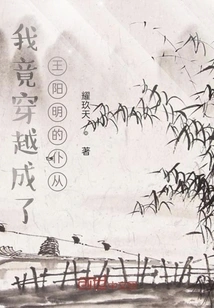 我竟穿越成了
王阳明的仆从
耀玖天。著